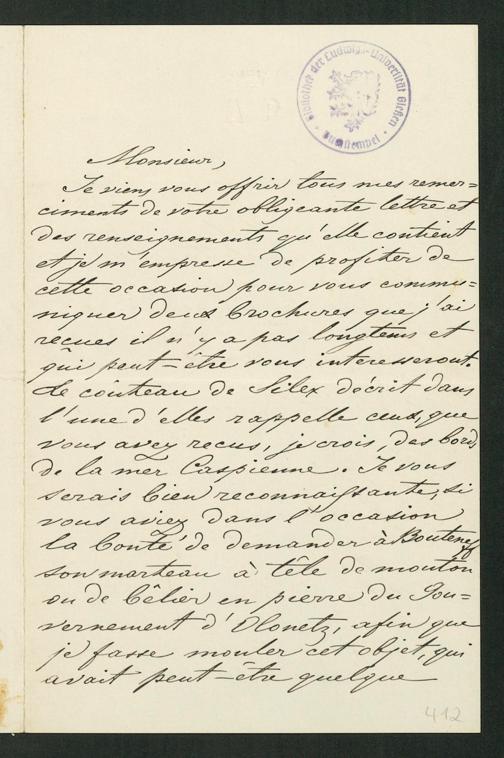 Bibliothek der Ludwigs-Universität Gießen
Monsieur,
Je viens vous offrir tous mes remer-
ciments de votre obligeante lettre et
des renseignements qu'elle contient
et je m'empresse de profiter de
cette occasion pour vous commu-
niquer deux brochures que j'ai
recues il n'y a pas longtems et
qui peut-être vous interesseront.
Le couteau de Silex décrit dans
l'une d'elles rappelle ceux, que
vous avez recus, je crois, des bords
de la mer Caspienne. Je vous
serais bien reconnaissante, si
vous aviez dans l'occasion
la bonté de demander à Boutenef
son marteau à tête de mouton
ou de bêlier en pierre du Gou-
vernement d'Olonetz, afin que
je fasse mouler cet objet, qui
avait peut-être quelque
412